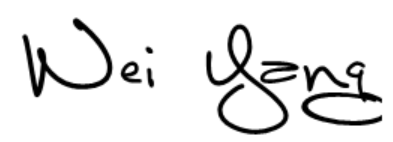 Wei Yang